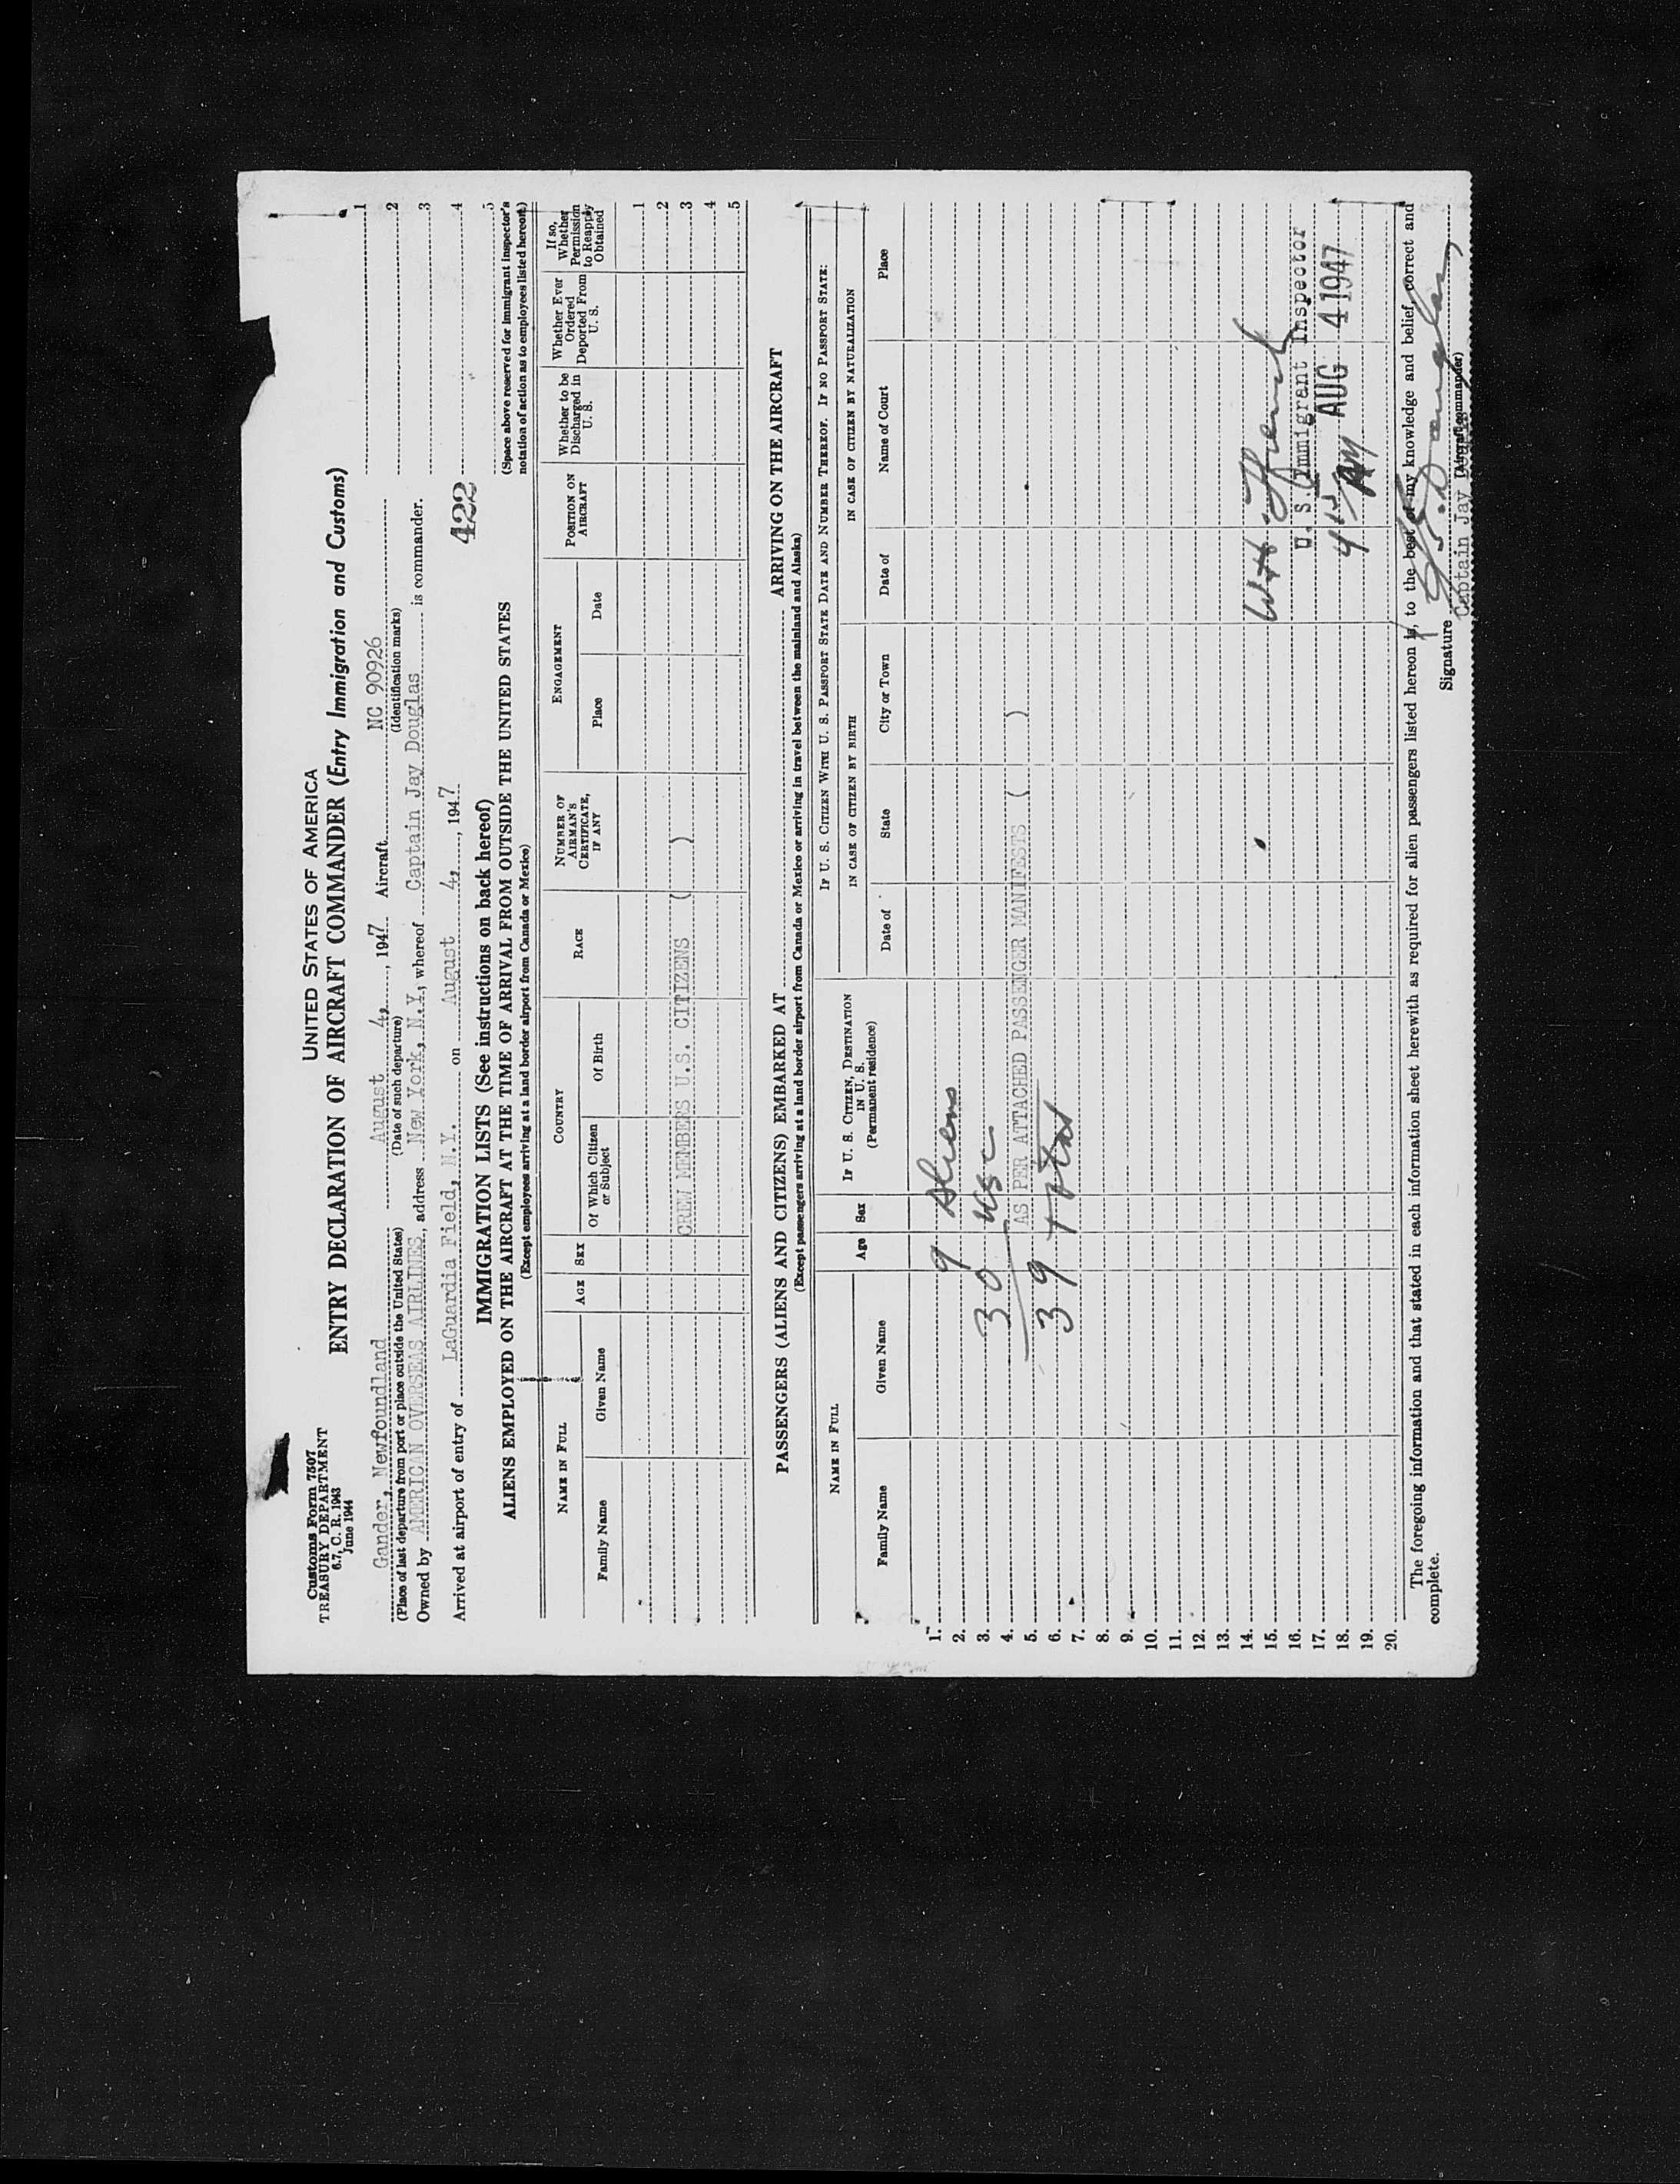 Customs Form 7507
TREASURY DEPARTMENT
6.7, C. R. 1943
June 1944
UNITED STATES OF AMERICA
ENTRY DECLARATION OF AIRCRAFT COMMANDER (Entry Immigration and Customs)
Gander, Newfoundland August 4, 1947 Aircraft NC 90926
(Place of last departure from port or place outside the United States) (Date of such departure) (Identification marks)
Owned by AMERICAN OVERSEAS AIRLINES, address New York, N.Y., whereof Captain Jay Douglas is commander.
Arrived at airport of entry of LaGuardia Field, N.Y. on August 4, 1947
422
1
2
3
4
5
(Space above reserved for immigrant inspector's
notation of action as to employees listed hereon.)
IMMIGRATION LISTS (See instructions on back hereof)
ALIENS EMPLOYED ON THE AIRCRAFT AT THE TIME OF ARRIVAL FROM OUTSIDE THE UNITED STATES
(Except employees arriving at a land border airport from Canada or Mexico)
NAME IN FULL
Family Name Given Name
AGE
SEX
COUNTRY
Of Which Citizen or Subject
Of Birth
RACE
NUMBER OF AIRMAN'S CERTIFICATE, IF ANY
ENGAGEMENT
Place Date
POSITION ON AIRCRAFT
Whether to be Discharged in U. S.
Whether Ever Ordered Deported From U. S.
If so, Whether Permission to Reapply Obtained
1
2
CREW MEMBERS U.S. CITIZENS ( ) 3
4
5
PASSENGERS (ALIENS AND CITIZENS) EMBARKED AT ARRIVING ON THE AIRCRAFT
(Except passengers arriving at a land border airport from Canada or Mexico or arriving in travel between the mainland and Alaska)
NAME IN FULL
Family Name Given Name
Age
Sex
IF U. S. CITIZEN, DESTINATION IN U. S.
(Permanent residence)
IF U. S. CITIZEN WITH U. S. PASSPORT STATE DATE AND NUMBER THEREOF. IF NO PASSPORT STATE:
IN CASE OF CITIZEN BY BIRTH
IN CASE OF CITIZEN BY NATURALIZATION
Date of State City or Town Date of Name of Court Place
1.
2. 9 Aliens
3. 30 USC
4.
5. AS PER ATTACHED PASSENGER MANIFESTS ( )
6. 39 Total
7.
8.
9.
10.
11.
12.
13.
14.
15.
16. U. S. Immigrant Inspector
17.
18. AM AUG 4 1947
19.
20.
The foregoing information and that stated in each information sheet herewith as required for alien passengers listed hereon is, to the best of my knowledge and belief, correct and
complete.
Signature
(Aircraft commander)
Captain Jay Douglas